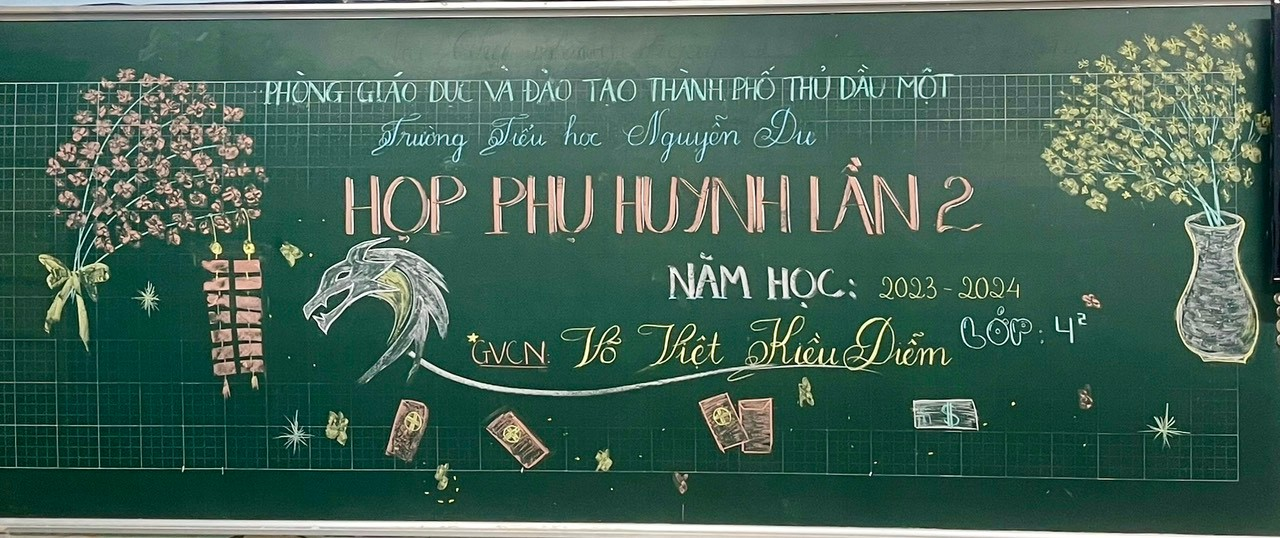 PHÒNG GIÁO DỤC VÀ ĐÀO TẠO THÀNH PHỐ THỦ DẦU MỘT
Trường Tiểu học Nguyễn Du
HỌP PHỤ HUYNH LẦN 2
NĂM HỌC: 2023-2024
GVCN: Võ Việt Kiều Diễm
LỚP: 4²
$